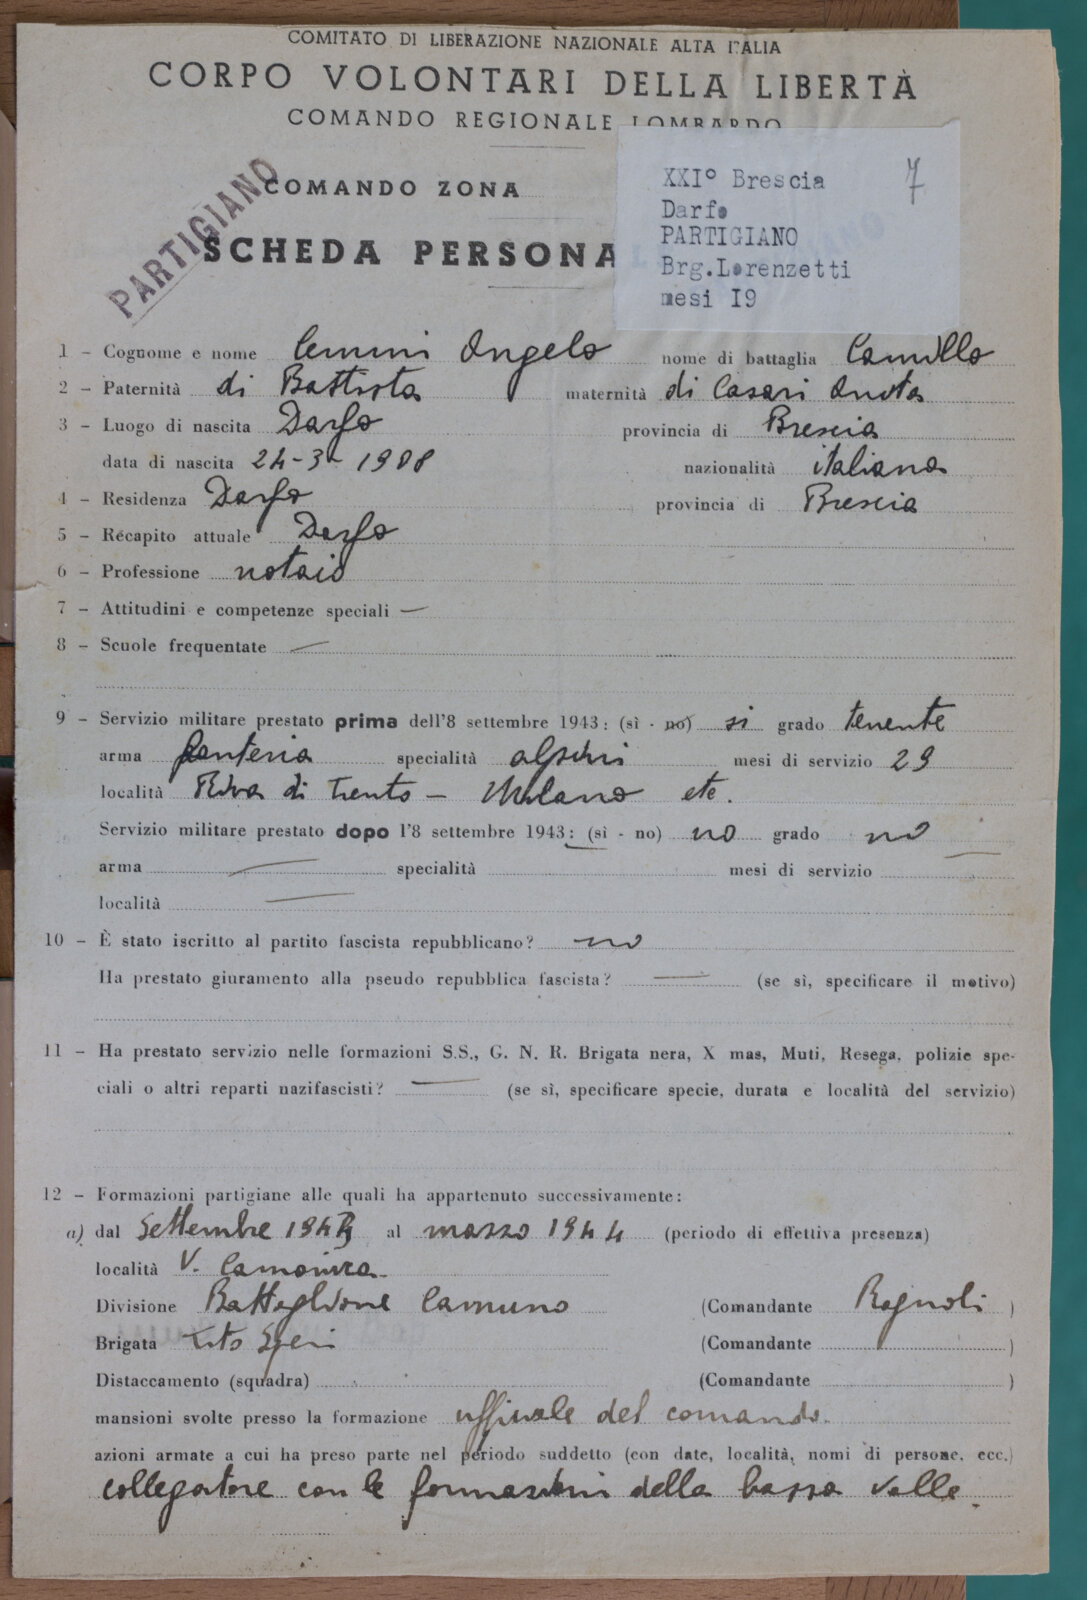 COMITATO DI LIBERAZIONE NAZIONALE ALTA ITALIA
CORPO VOLONTARI DELLA LIBERTÀ
COMANDO REGIONALE LOMBARDO
PARTIGIANO
COMANDO ZONA
SCHEDA PERSONA
XXI° Brescia 7
Darfo
PARTIGIANO
Brg.Lorenzetti
mesi I9
1 - Cognome e nome Cemmi Angelo nome di battaglia Camillo
2 - Paternità di Battista maternità di Casari Anita
3 - Luogo di nascita Darfo provincia di Brescia
data di nascita 24-3-1908 nazionalità italiana
4 - Residenza Darfo provincia di Brescia
5 - Recapito attuale Darfo
6 - Professione notaio
7 - Attitudini e competenze speciali —
8 - Scuole frequentate —
9 - Servizio militare prestato prima dell'8 settembre 1943: (sì - no) si grado tenente
arma fanteria specialità alpini mesi di servizio 29
località Riva di Trento - Milano etc.
Servizio militare prestato dopo l'8 settembre 1943: (sì - no) no grado no
arma — specialità mesi di servizio —
località —
10 - È stato iscritto al partito fascista repubblicano? no
Ha prestato giuramento alla pseudo repubblica fascista? — (se sì, specificare il motivo)
11 - Ha prestato servizio nelle formazioni S.S., G. N. R. Brigata nera, X mas, Muti, Resega, polizie spe-
ciali o altri reparti nazifascisti? — (se sì, specificare specie, durata e località del servizio)
12 - Formazioni partigiane alle quali ha appartenuto successivamente:
a) dal Settembre 1943 al marzo 1944 (periodo di effettiva presenza)
località V. Camonica
Divisione Battaglione Camuno (Comandante Ragnoli )
Brigata Tito Speri (Comandante )
Distaccamento (squadra) (Comandante )
mansioni svolte presso la formazione ufficiale del comando.
azioni armate a cui ha preso parte nel periodo suddetto (con date, località, nomi di persone, ecc.)
collegatore con le formazioni della bassa valle.